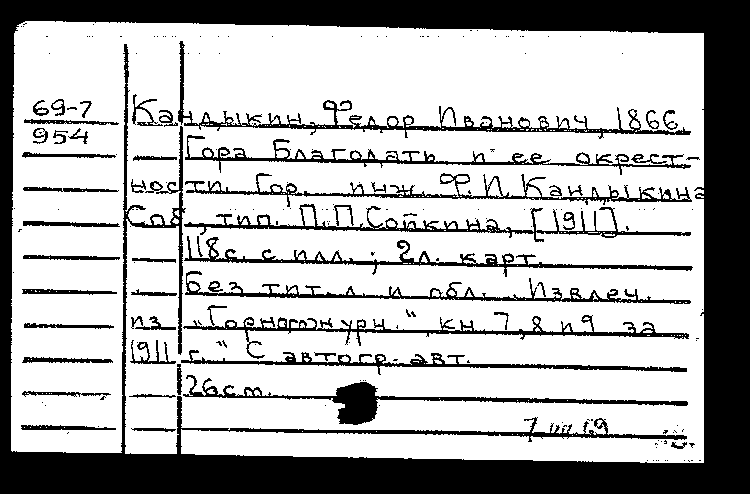 69-7
954
Кандыкин, Федор Иванович, 1866.
Гора Благодать и ее окрест-
ности. Гор. инж. Ф.И. Кандыкина
Спб., тип. П.П.Сойкина, [1911].
118с. с илл.; 2л. карт.
Без тит. л. и обл. Извлеч.
из „Горного журн.“, кн. 7,8 и 9 за
1911 г.“ С автогр. авт.
26см.
69